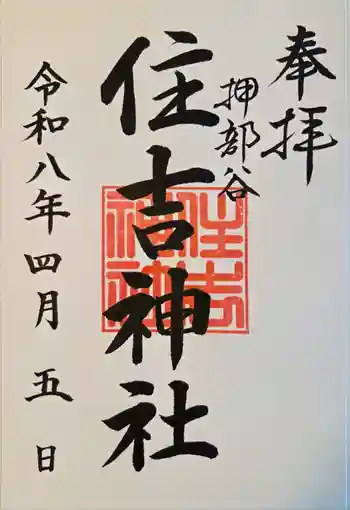 奉拝
押部谷
住吉神社
住吉
神社
令和八年四月五日